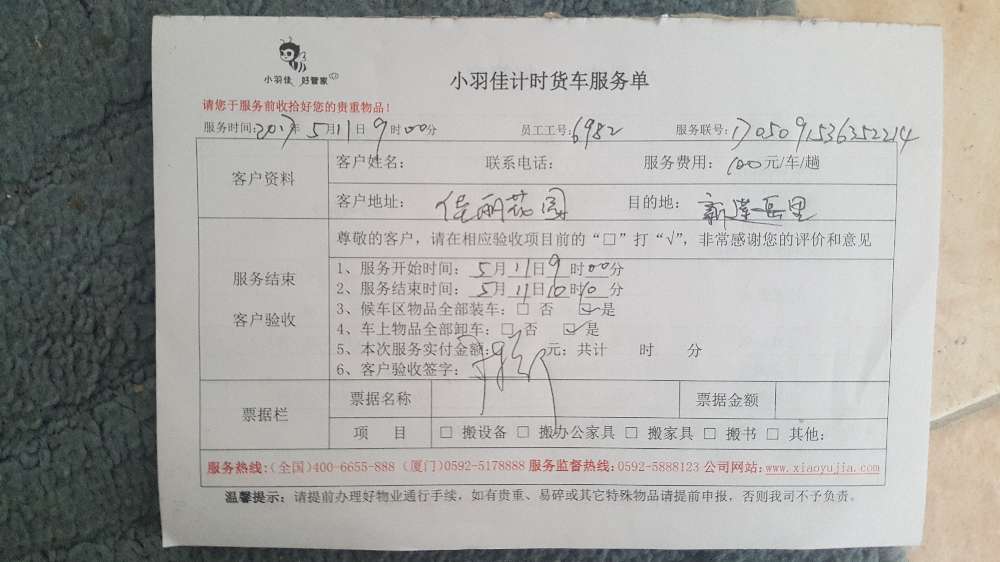 小羽佳 好管家
小羽佳计时货车服务单
请您于服务前收拾好您的贵重物品！
服务时间：2017年5月11日9时00分 员工工号：6982 服务联号：1705091536352214
客户资料
客户姓名： 联系电话： 服务费用：100元/车/趟
客户地址：佳丽花园 目的地：新岳里
服务结束
客户验收
尊敬的客户，请在相应验收项目前的“□”打“√”，非常感谢您的评价和意见
1、服务开始时间：5月11日9时00分
2、服务结束时间：5月11日10时10分
3、候车区物品全部装车：□ 否 ☑ 是
4、车上物品全部卸车：□ 否 ☑ 是
5、本次服务实付金额： 元；共计 时 分
6、客户验收签字：
票据栏
票据名称 票据金额
项 目 □ 搬设备 □ 搬办公家具 □ 搬家具 □ 搬书 □ 其他：
服务热线：（全国）400-6655-888（厦门）0592-5178888 服务监督热线：0592-5888123 公司网站：www.xiaoyujia.com
温馨提示：请提前办理好物业通行手续，如有贵重、易碎或其它特殊物品请提前申报，否则我司不予负责。